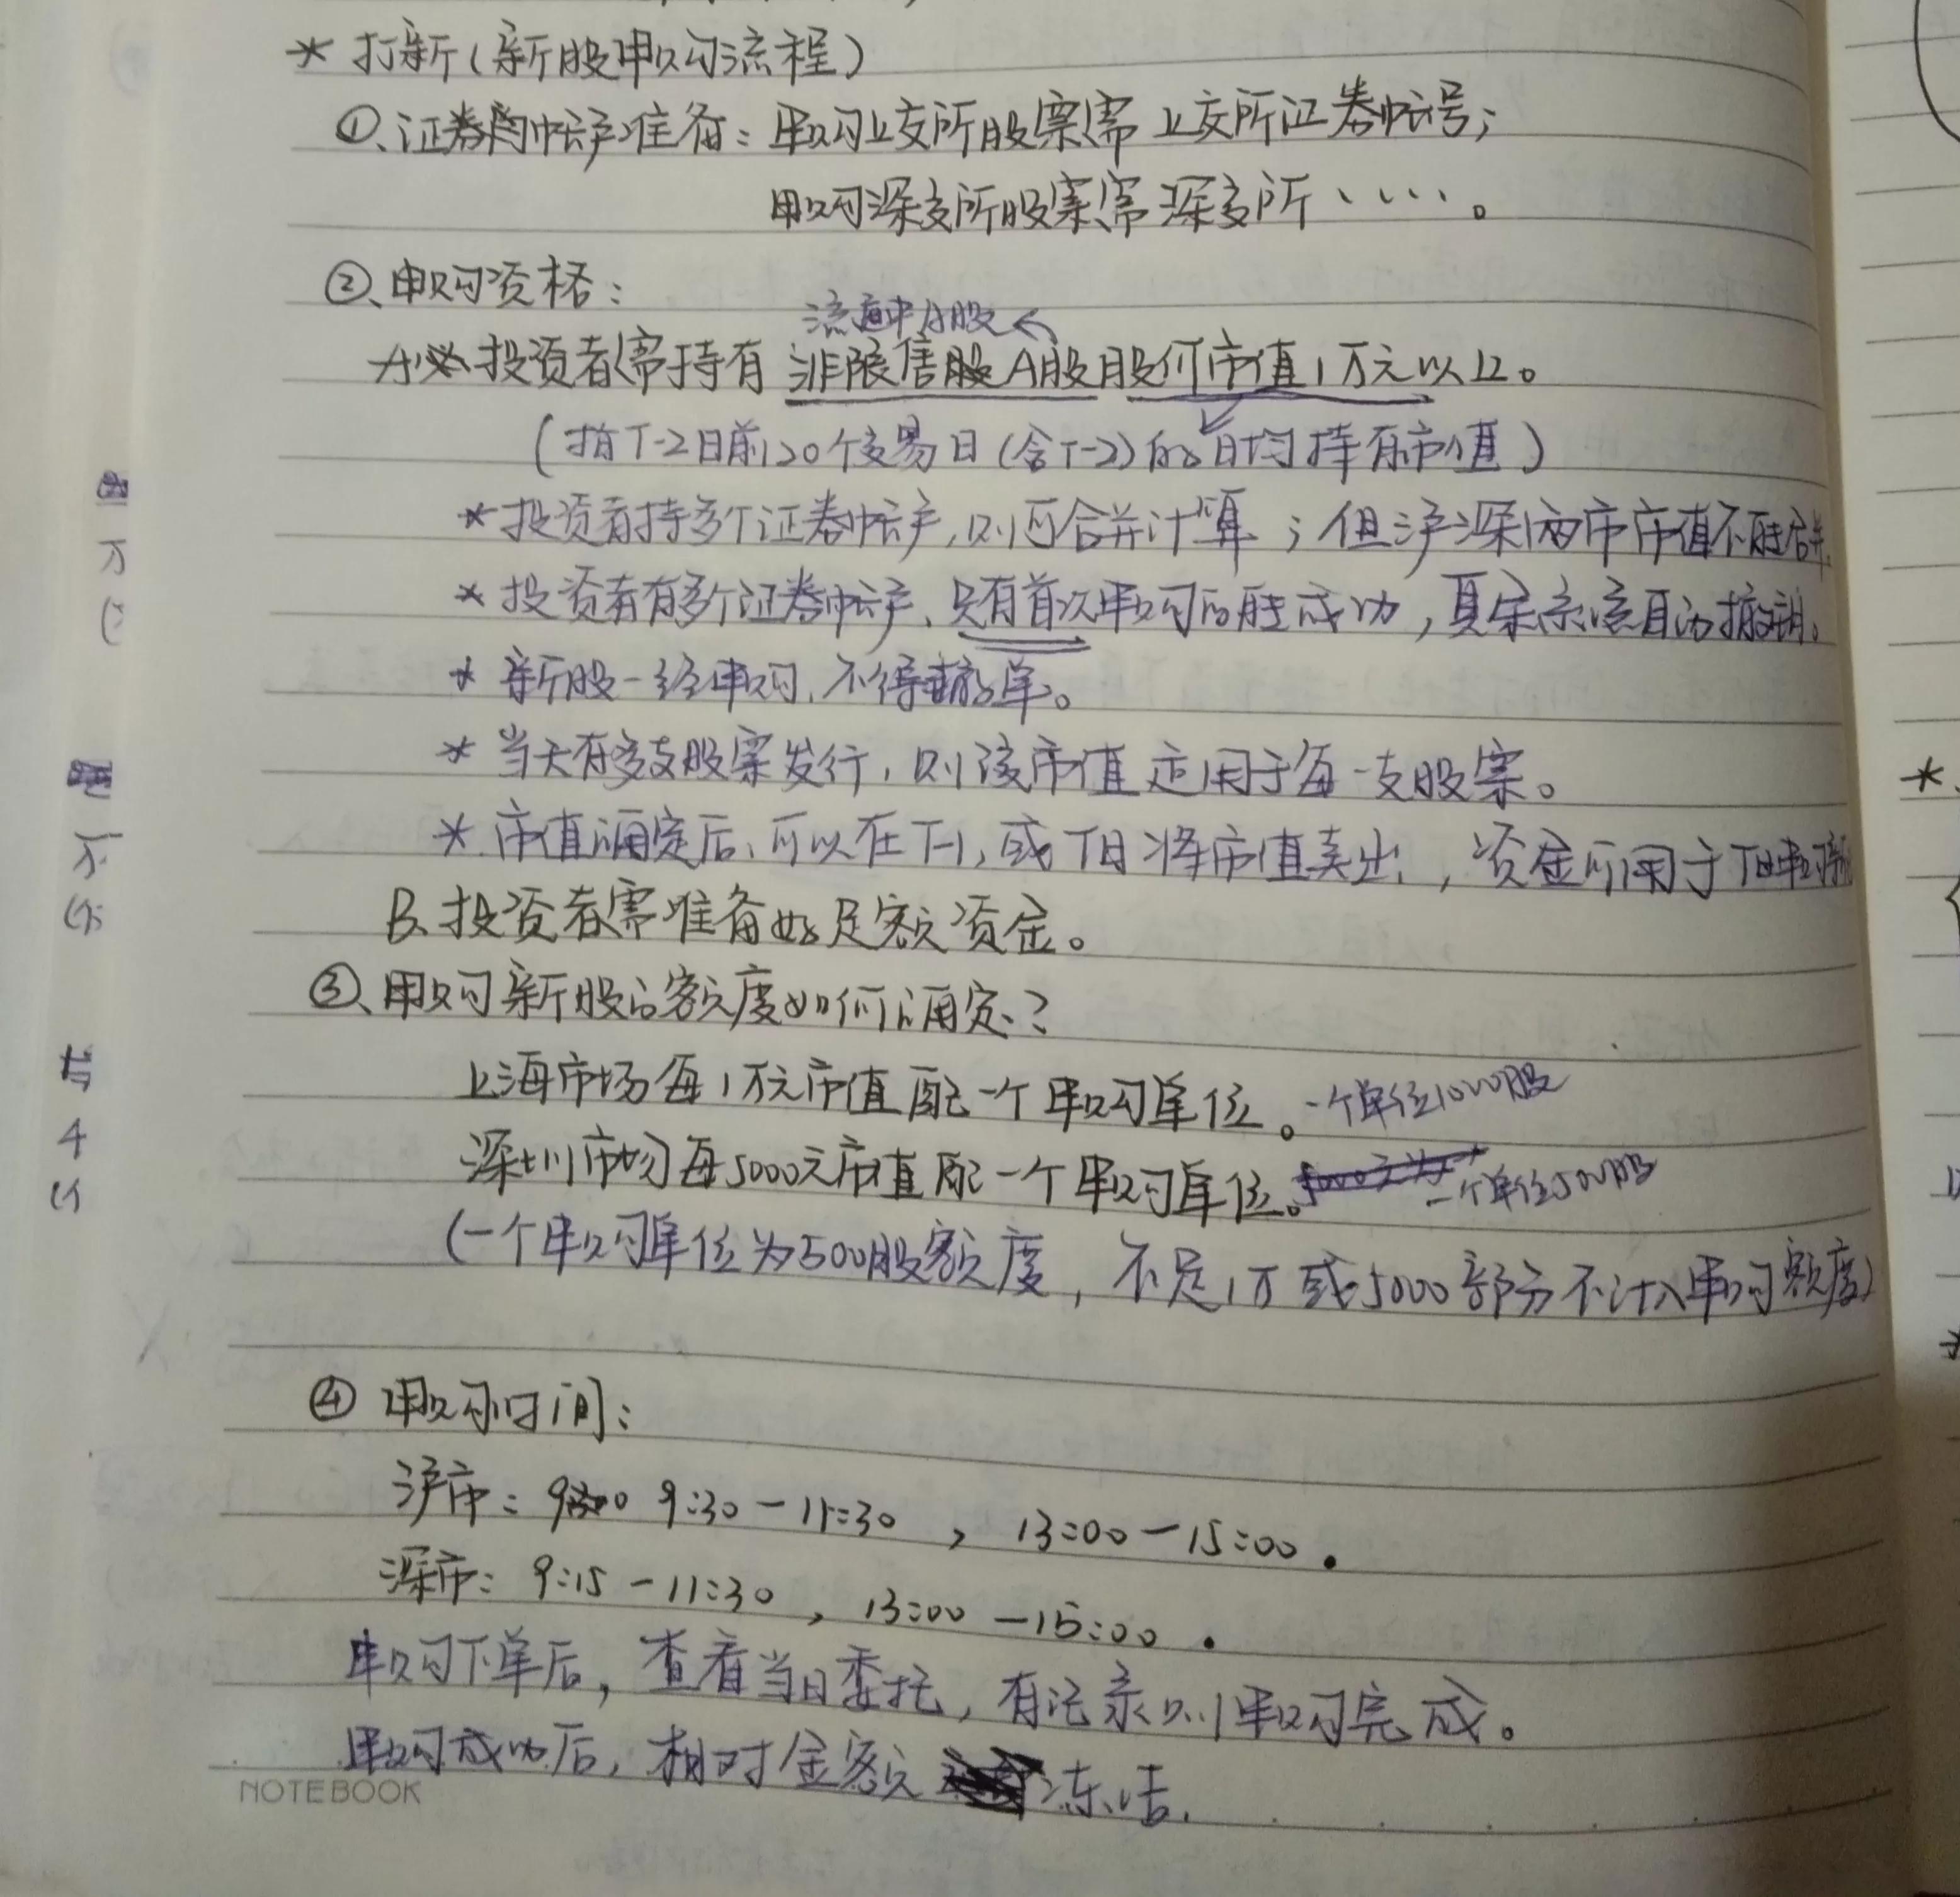 * 打新(新股申购流程)
①、证券帐户准备：申购上交所股票需上交所证券帐号；
申购深交所股票需深交所……。
②、申购资格：
流通中A股
A、投资者需持有非限售A股股份市值1万元以上。
(指T-2日前20个交易日(含T-2)的日均持有市值)
* 投资者持多个证券帐户,则可合并计算；但沪深两市市值不能合并.
* 投资者有多个证券帐户、只有首次申购的能成功，其余系统自动撤销。
* 新股一经申购,不得撤单。
* 当天有多支股票发行，则该市值适用于每一支股票。
* 市值确定后、可以在T-1,或T日将市值卖出，资金可用于T日申购新
B、投资者需准备好足额资金。
③、申购新股的额度如何确定？
上海市场每1万元市值配一个申购单位。一个单位1000股
深圳市场每5000元市值配一个申购单位。一个单位500股
(一个申购单位为500股额度，不足1万或5000部分不计入申购额度)
④ 申购时间：
沪市：9:30－11:30，13:00－15:00.
深市：9:15－11:30，13:00－15:00.
申购下单后，查看当日委托，有记录则申购完成。
申购成功后，相对金额冻结.
NOTEBOOK